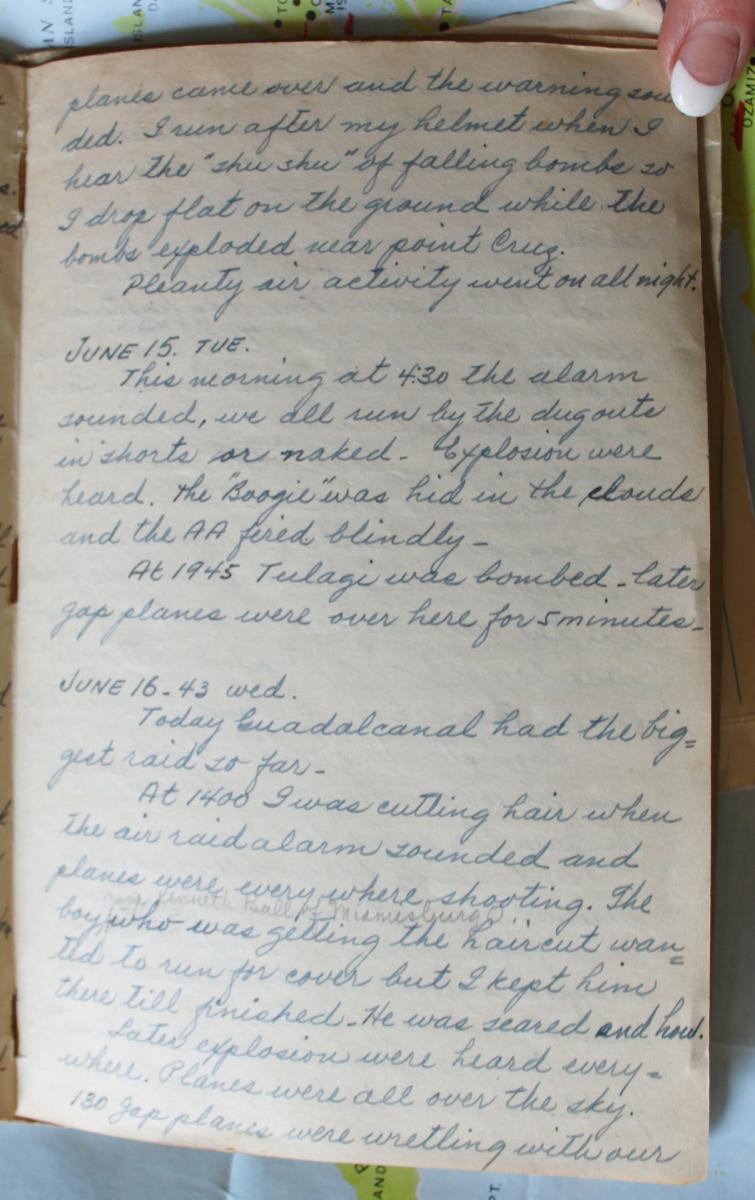 planes came over and the warning soun
ded. I run after my helmet when I
hear the "shu shu" of falling bombs so
I drop flat on the ground while the
bombs exploded near point Cruz.
Pleanty air activity went on all night.
JUNE 15. TUE.
This morning at 4:30 the alarm
sounded, we all run by the dugouts
in shorts or naked - Explosion were
heard. the "Boogie" was hid in the clouds
and the AA fired blindly -
At 1945 Tulagi was bombed - later
Jap planes were over here for 5 minutes -
JUNE 16 - 43 wed.
Today Guadalcanal had the big=
gest raid so far -
At 1400 I was cutting hair when
the air raid alarm sounded and
planes were every where shooting. The
Kenneth Ball of Miamisburg O.
boy who was getting the haircut wan=
ted to run for cover but I kept him
there till finished - He was scared and how.
Later explosion were heard every=
where. Planes were all over the sky.
130 Jap planes were wretling with our
OZAMIZ
ISLAN
ISLAND